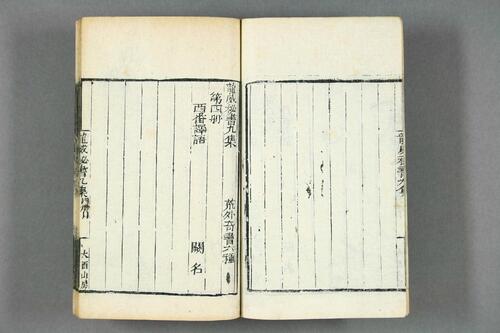 龍威秘書九集
荒外奇書六種
第四册
西番譯語
闕名
龍威秘書九集
大酉山房
龍威秘書九集